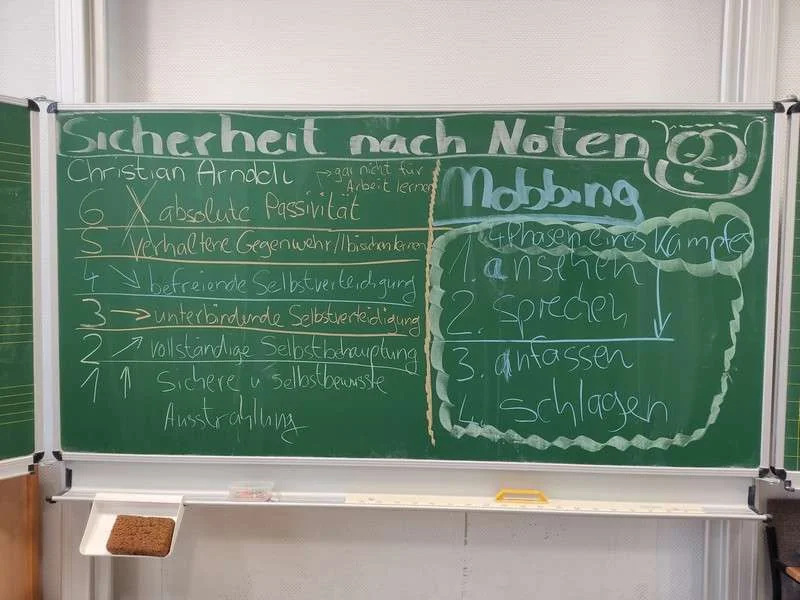 Sicherheit nach Noten
Christian Arndt
gar nicht für
Arbeit lernen
6 X absolute Passivität
5 verhaltene Gegenwehr/
4 ↘ befreiende Selbstverteidigung
3 → unterbindende Selbstverteidigung
2 ↗ vollständige Selbstbehauptung
1 ↑ Sichere u selbstbewusste
Ausstrahlung
Mobbing
4 Phasen eines Kampfes
1. ansehen
2. sprechen
3. anfassen
4. schlagen